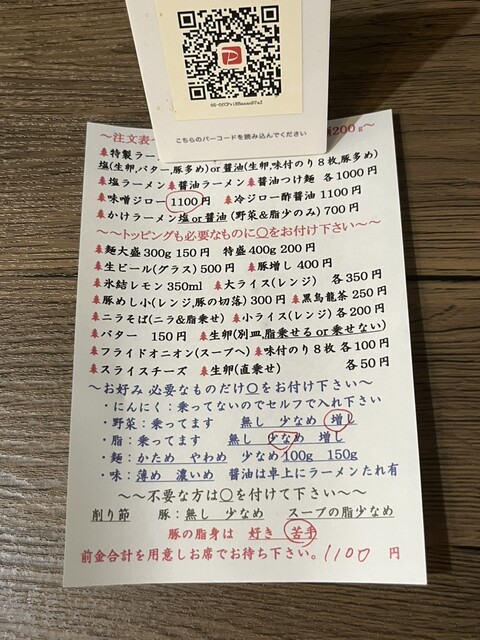 こちらのバーコードを読み込んでください
～注文表～ 200g～
特製ラー
塩(生卵,バター,豚多め)or醤油(生卵,味付のり8枚,豚多め)
塩ラーメン 醤油ラーメン 醤油つけ麺 各1000円
味噌ジロー 1100円 冷ジロー酢醤油 1100円
かけラーメン塩or醤油 (野菜&脂少のみ) 700円
～～トッピングも必要なものに○をお付け下さい～～
麺大盛300g 150円 特盛400g 200円
生ビール(グラス) 500円 豚増し 400円
氷結レモン 350ml 大ライス(レンジ) 各350円
豚めし小(レンジ,豚の切落) 300円 黒烏龍茶 250円
ニラそば(ニラ&脂乗せ) 小ライス(レンジ) 各200円
バター 150円 生卵(別皿,脂乗せるor乗せない)
フライドオニオン(スープへ) 味付のり8枚 各100円
スライスチーズ 生卵(直乗せ) 各50円
～お好み 必要なものだけ○をお付け下さい～
・にんにく：乗ってないのでセルフで入れ下さい
・野菜：乗ってます 無し 少なめ 増し
・脂：乗ってます 無し 少なめ 増し
・麺：かため やわめ 少なめ100g 150g
・味：薄め 濃いめ 醤油は卓上にラーメンたれ有
～～不要な方は○を付けて下さい～～
削り節 豚：無し 少なめ スープの脂少なめ
豚の脂身は 好き 苦手
前金合計を用意しお席でお待ち下さい。1100 円